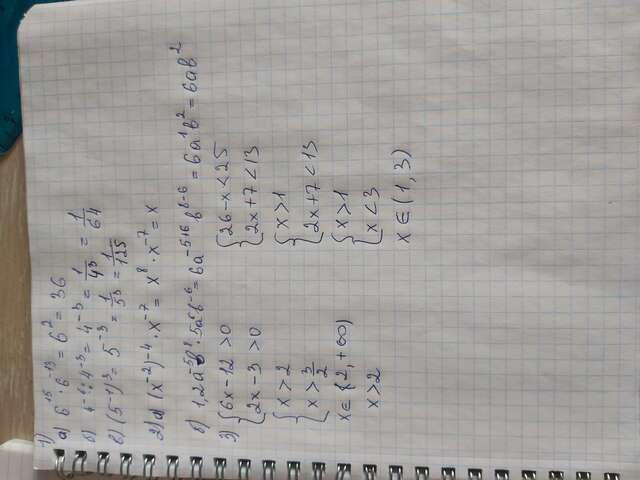 1)
а) 6^15 · 6^-13 = 6^2 = 36
б) 4^-6 : 4^-3 = 4^-3 = 1/4^3 = 1/64
в) (5^-1)^3 = 5^-3 = 1/5^3 = 1/125
2) а) (x^-2)^-4 · x^-7 = x^8 · x^-7 = x
б) 1,2a^-5b^8 · 5a^6b^-6 = 6a^-5+6 b^8-6 = 6a^1b^2 = 6ab^2
3) { 6x-12 >0
{ 2x-3 >0
{ x > 2
{ x > 3/2
x ∈ (2, +∞)
x > 2
{ 26-x < 25
{ 2x+7 < 13
{ x > 1
{ 2x+7 < 13
{ x > 1
{ x < 3
x ∈ (1, 3)